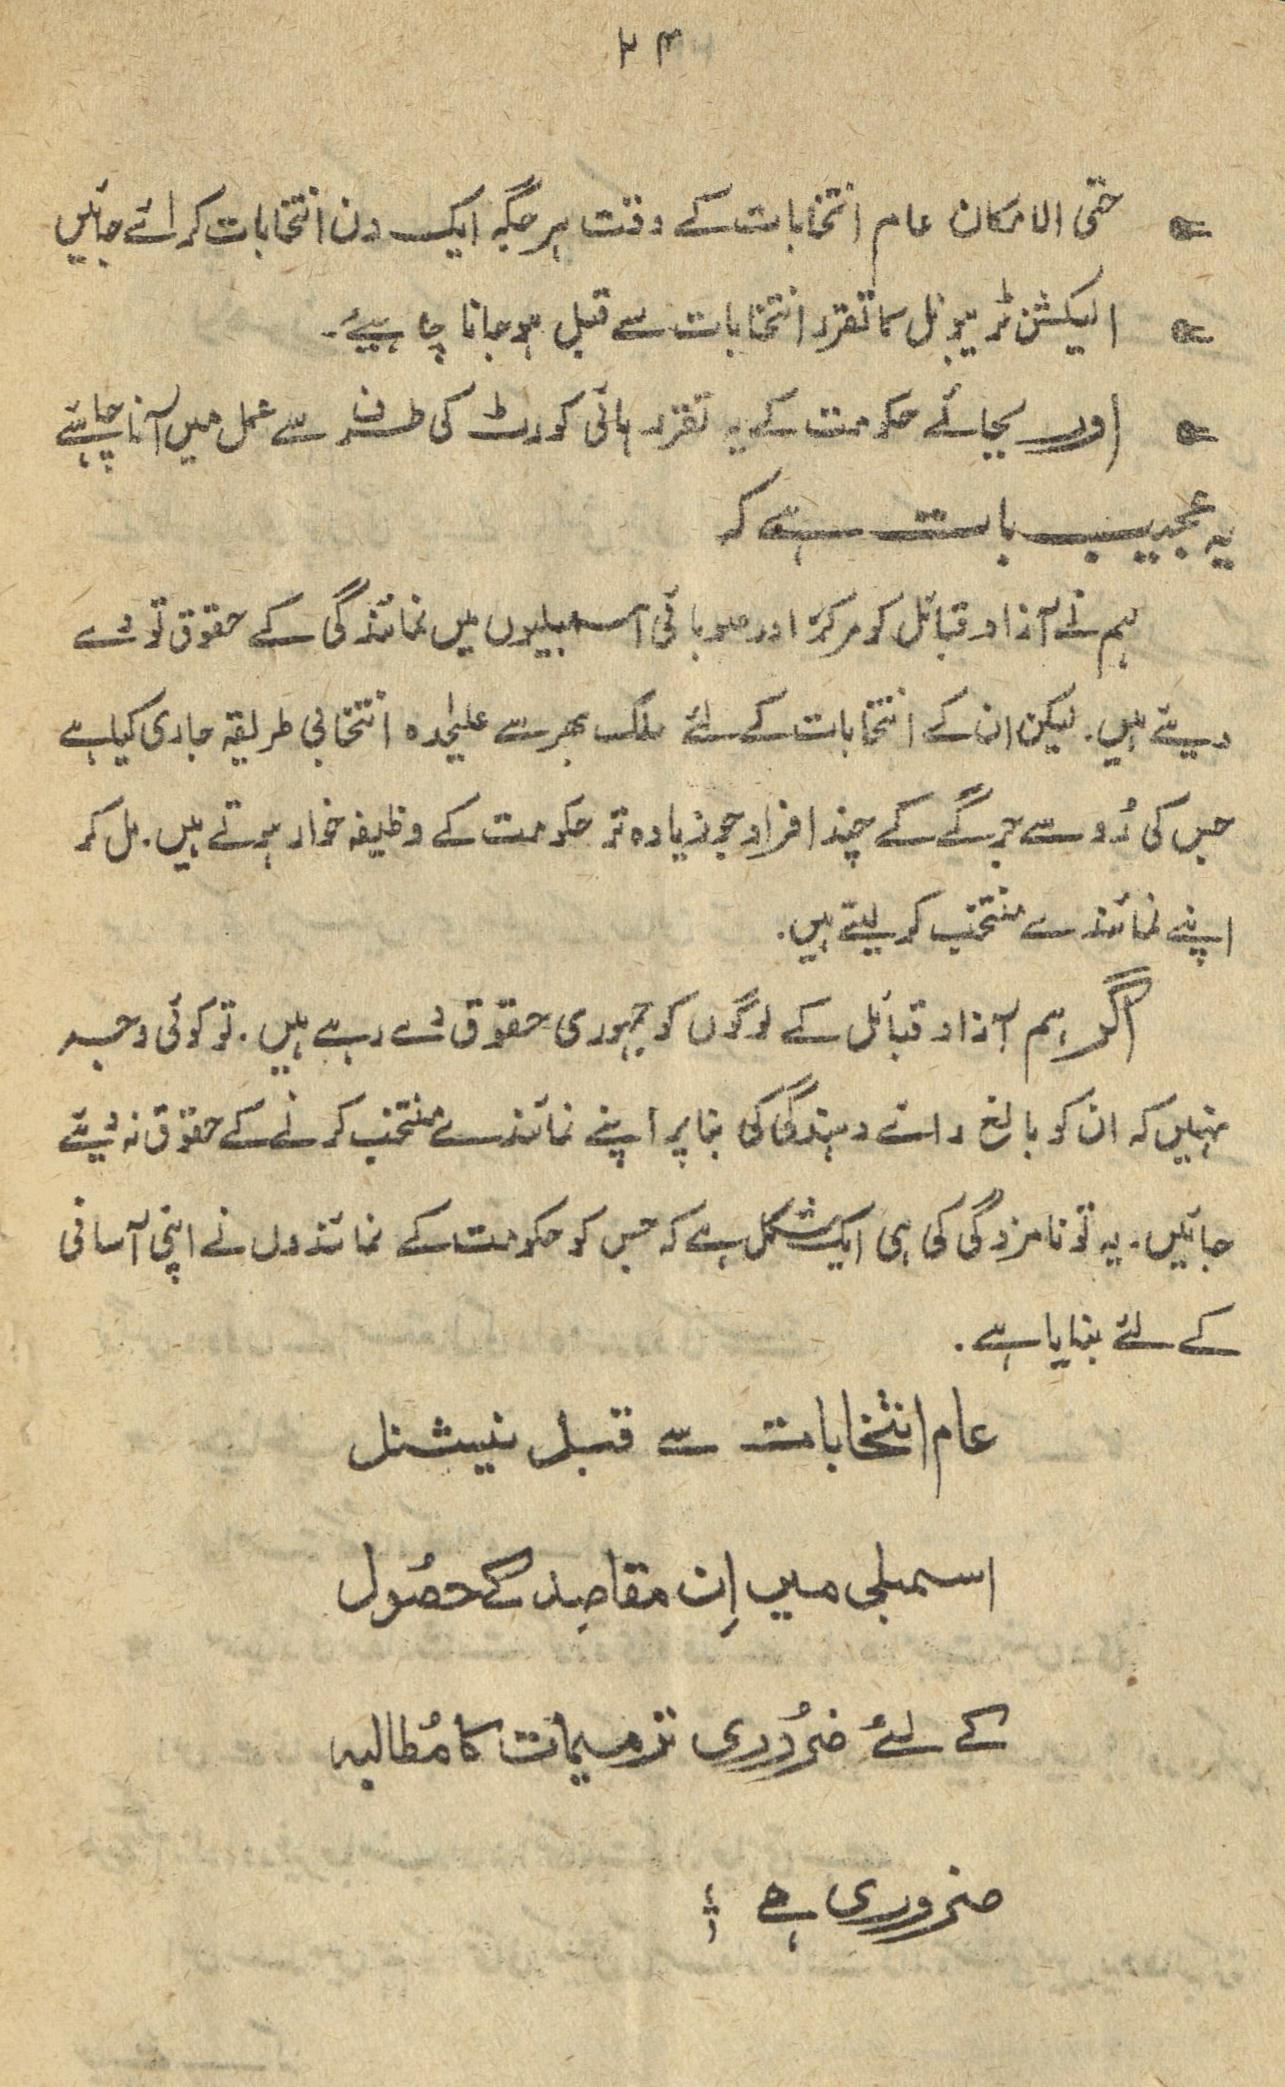 ۲۳
حتی الامکان عام انتخابات کے وقت ہر جگہ ایک دن انتخابات کرائے جائیں
الیکشن ٹریبونل کا تقرر انتخابات سے قبل ہو جانا چاہیئے۔
اور بجائے حکومت کے یہ تقرر ہائی کورٹ کی طرف سے عمل میں آنا چاہئے
یہ عجیب بات ہے کہ
ہم نے آزاد قبائل کو مرکز اور صوبائی اسمبلیوں میں نمائندگی کے حقوق تو دے
دیئے ہیں۔ لیکن ان کے انتخابات کے لئے ملک بھر سے علیٰحدہ انتخابی طریقہ جاری کیا ہے
جس کی رُو سے جرگے کے چند افراد جو زیادہ تر حکومت کے وظیفہ خوار ہوتے ہیں۔ مل کر
اپنے نمائندے منتخب کر لیتے ہیں۔
اگر ہم آزاد قبائل کے لوگوں کو جمہوری حقوق دے رہے ہیں۔ تو کوئی وجہ
نہیں کہ ان کو بالغ رائے دہندگی کی بنا پر اپنے نمائندے منتخب کرنے کے حقوق نہ دیئے
جائیں۔ یہ تو نامزدگی کی ہی ایک شکل ہے کہ جس کو حکومت کے نمائندوں نے اپنی آسانی
کے لئے بنایا ہے۔
عام انتخابات سے قبل نیشنل
اسمبلی میں اِن مقاصِد کے حصُول
کے لئے ضرُوری ترمیمات کا مُطالبہ
ضروری ہے